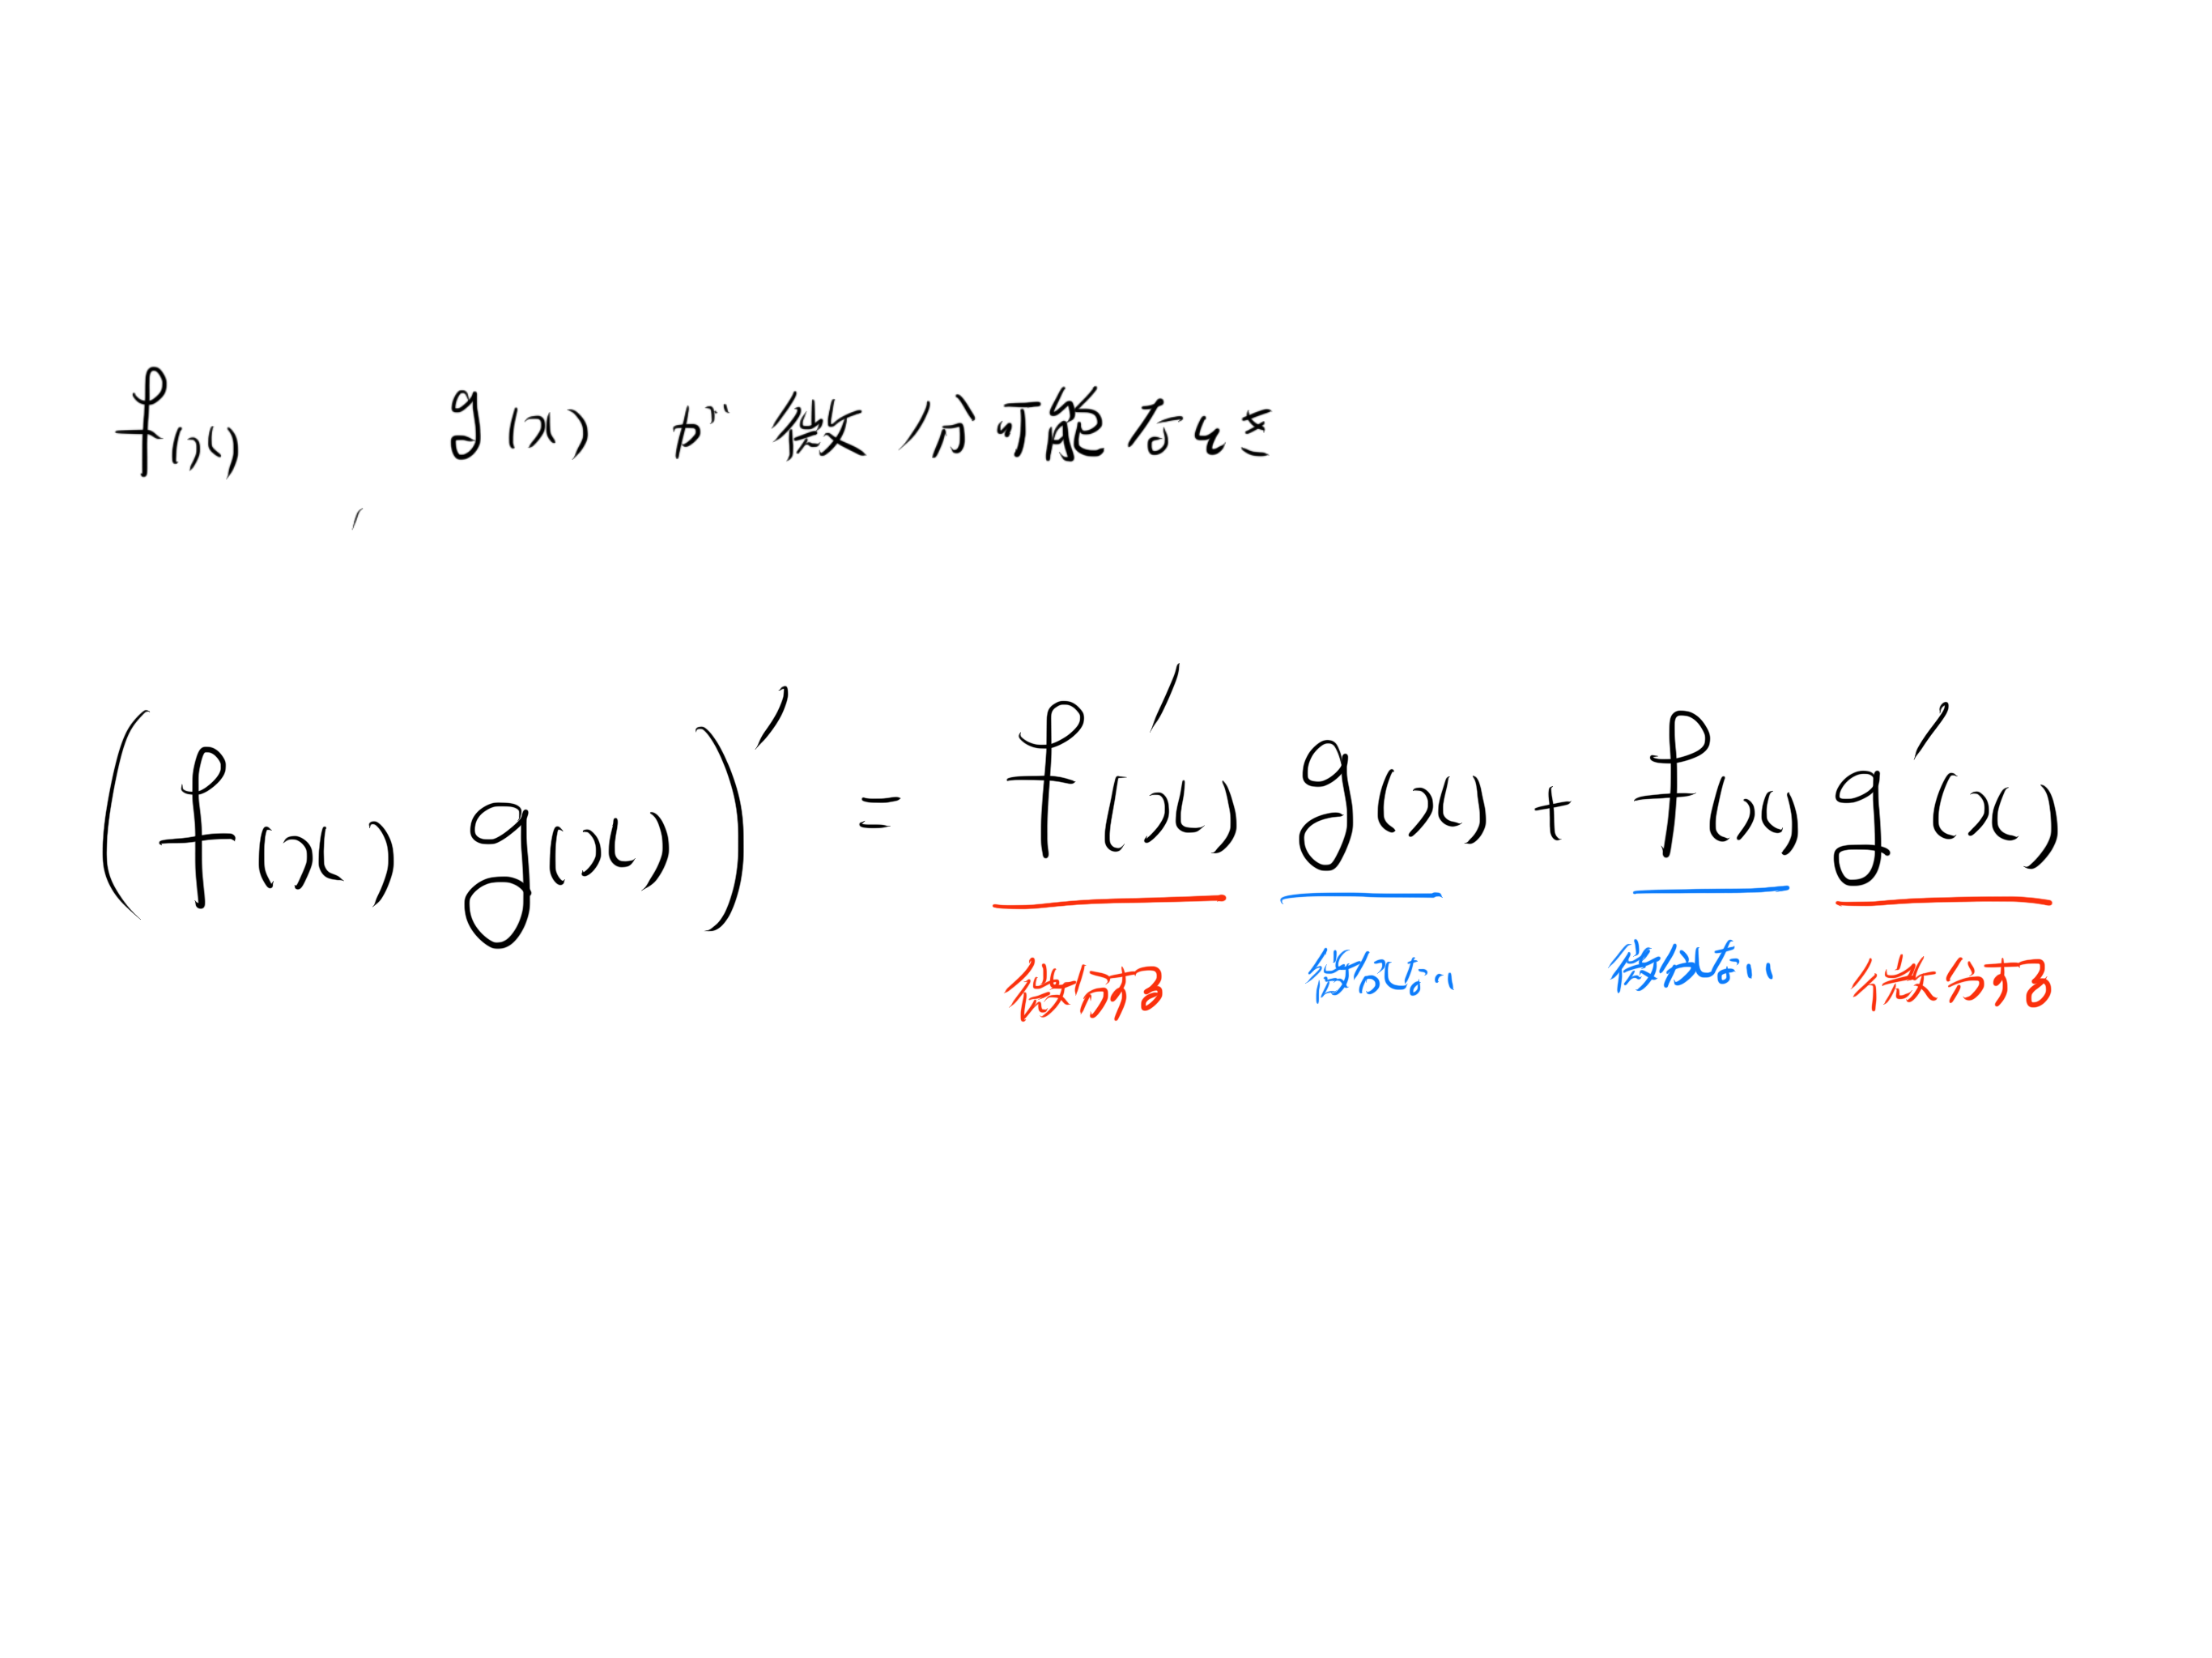 f(x), g(x) が微分可能なとき
(f(x) g(x))' = f'(x) g(x) + f(x) g'(x)
微分する 微分しない 微分しない 微分する